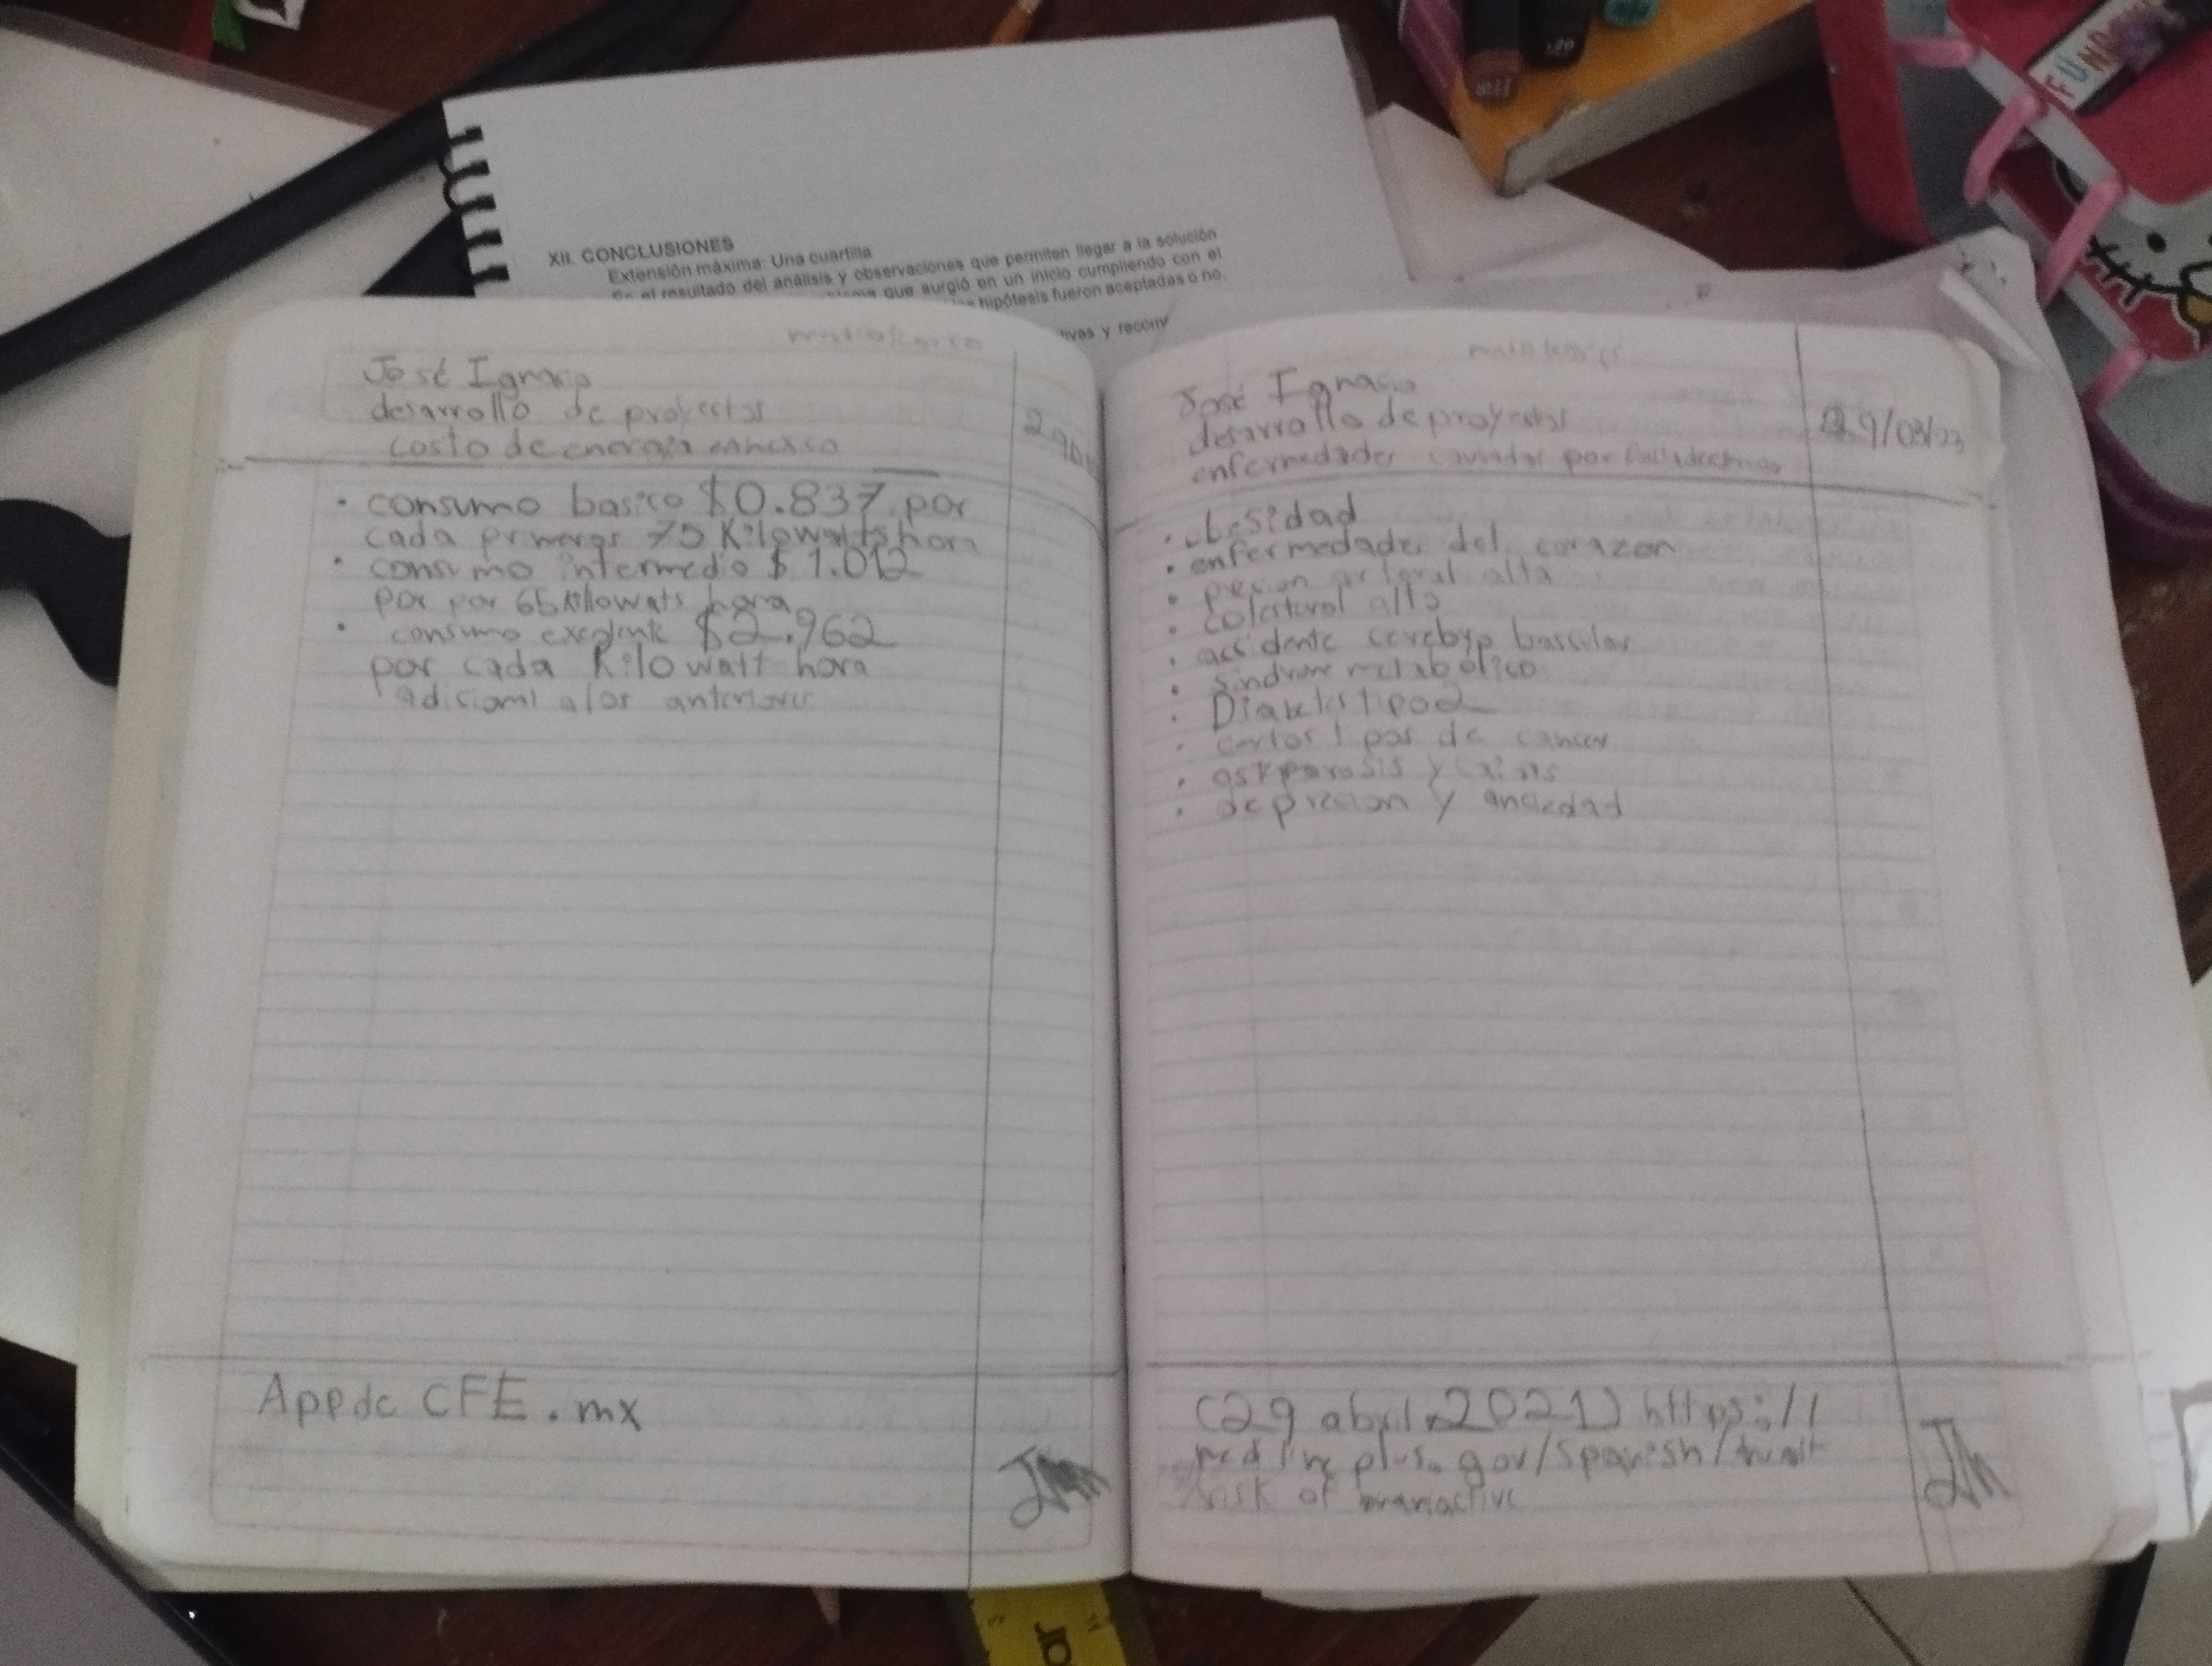 XII. CONCLUSIONES
Extensión máxima: Una cuartilla
Es el resultado del análisis y observaciones que permiten llegar a la solución
que surgió en un inicio cumpliendo con el
hipótesis fueron aceptadas o no.
y
José Ignacio
desarrollo de proyectos
costo de energia
• consumo basico $0.837 por
cada primeros 75 Kilowatts hora
• consumo intermedio $1.012
por por 65 Kilowats hora
• consumo exedente $2.962
por cada Kilowatt hora
adisional alos anteriores
App de CFE.mx
José Ignacio
desarrollo de proyectos
enfermedades causadas por
29/03/23
• obesidad
• enfermedades del corazon
• presion arteral alta
• colesterol alto
• accidente cerebro bascular
• sindrome metabólico
• Diabetes tipo 2
• ciertos tipos de cancer
• y
• depresion y anciedad
(29 abril 2021) https://
medline plus.gov/spanish/
risk of
JM